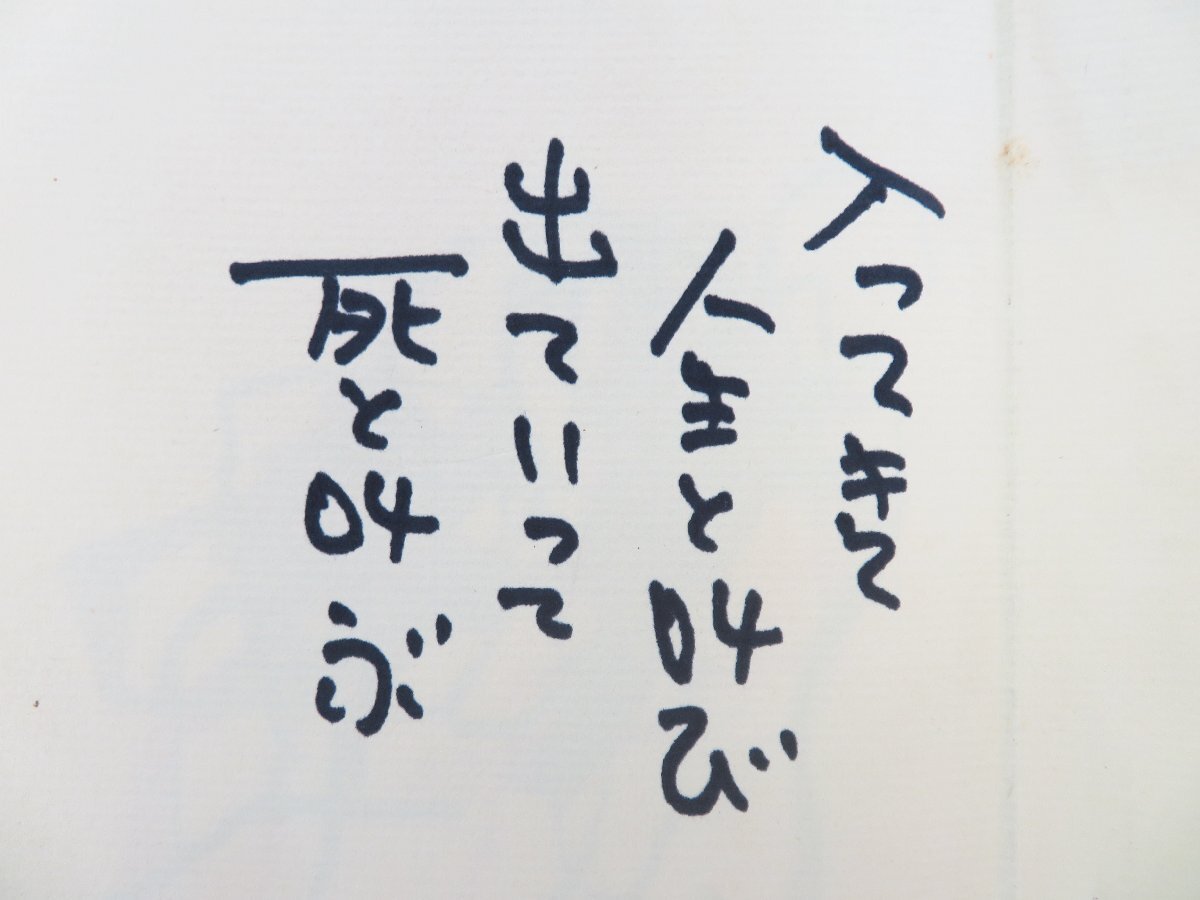 入ってきて
人生と叫び
出ていって
死と叫ぶ